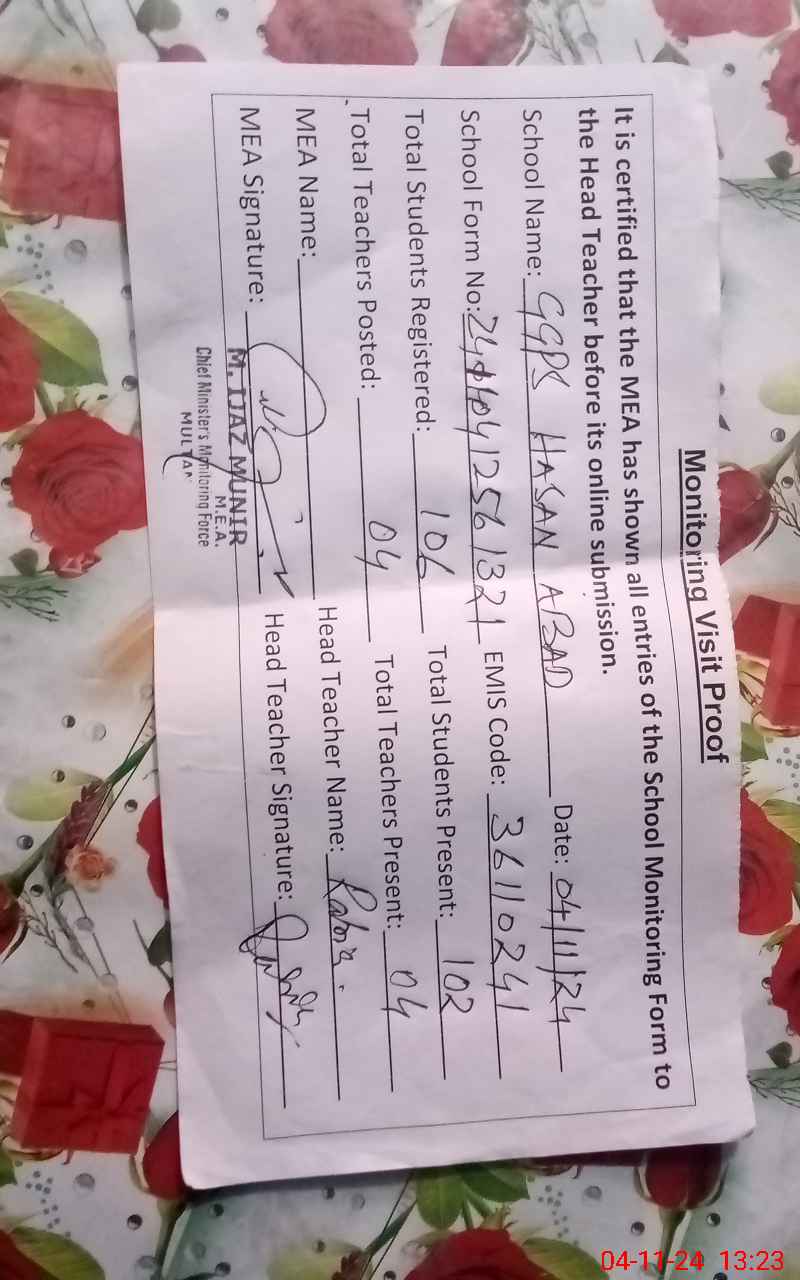 Monitoring Visit Proof
It is certified that the MEA has shown all entries of the School Monitoring Form to
the Head Teacher before its online submission.
School Name: GGPS HASAN ABAD Date: 04/11/24
School Form No: EMIS Code: 36110241
Total Students Registered: 106 Total Students Present: 102
Total Teachers Posted: 04 Total Teachers Present: 04
MEA Name: Head Teacher Name:
MEA Signature: Head Teacher Signature:
M. IJAZ MUNIR
M.E.A.
Chief Minister's Monitoring Force
MULTAN
04-11-24 13:23